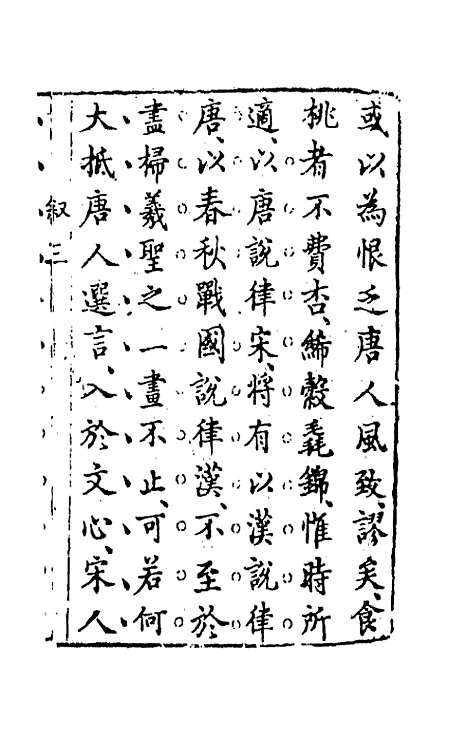 或以為恨乏唐人風致、謬矣、食
桃者不費杏、絺縠毳錦、惟時所
適、以唐說律宋、將有以漢說律
唐、以春秋戰國說律漢、不至於
盡掃羲聖之一畫不止、可若何
大抵唐人選言、入於文心、宋人
叙三